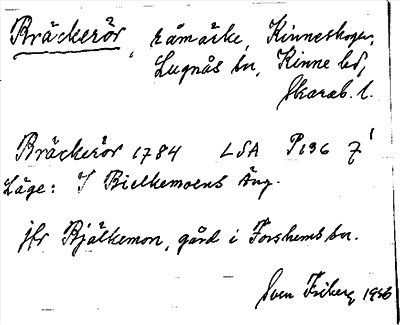 Bräckerör, råmärke, Kinneskogen,
Lugnås sn, Kinne hd,
Skarab. l.
Bräckerör 1784 LSA P136 7¹
Läge: I Bielkemoens Äng.
jfr Bjälkemon, gård i Forshems sn.
Sven Friberg 1946